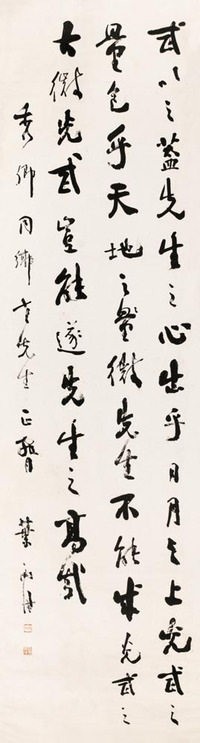 武以之蓋先生之心出乎日月之上光武之
量包乎天地之量微先生不能成光武之
大微光武豈能遂先生之高哉
秀卿同鄉先生正
葉